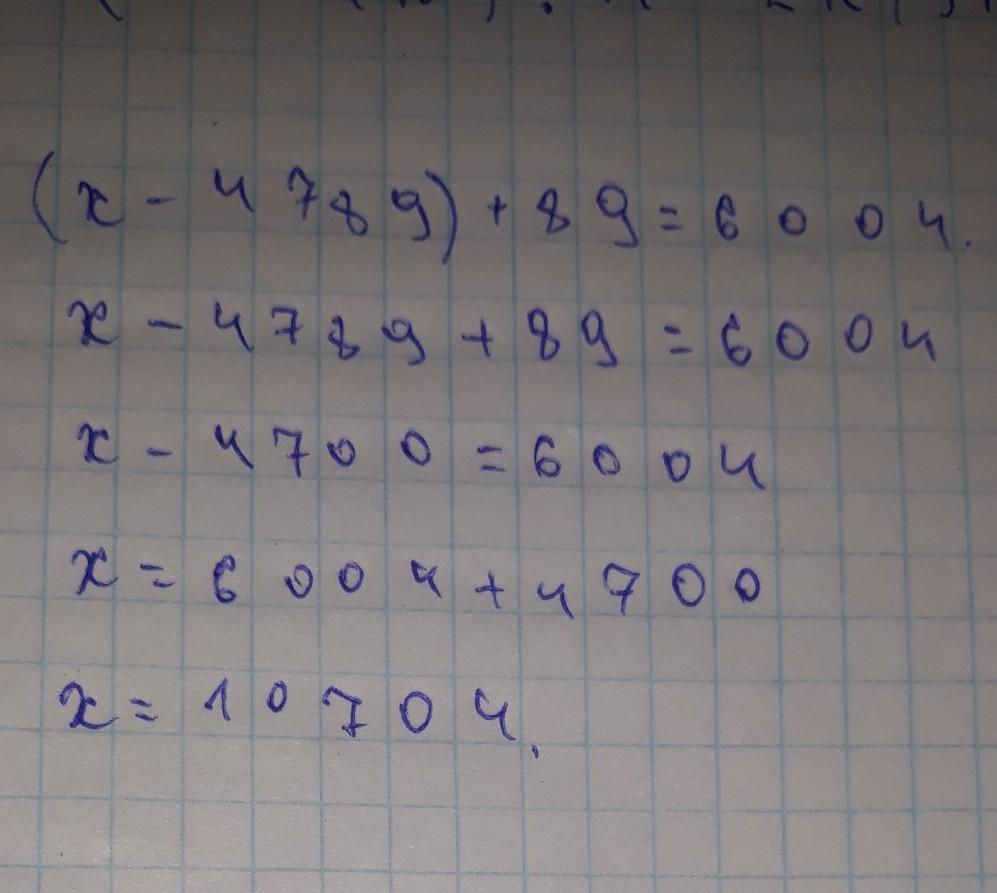 (x - 4789) + 89 = 6004.
x - 4789 + 89 = 6004
x - 4700 = 6004
x = 6004 + 4700
x = 10704.